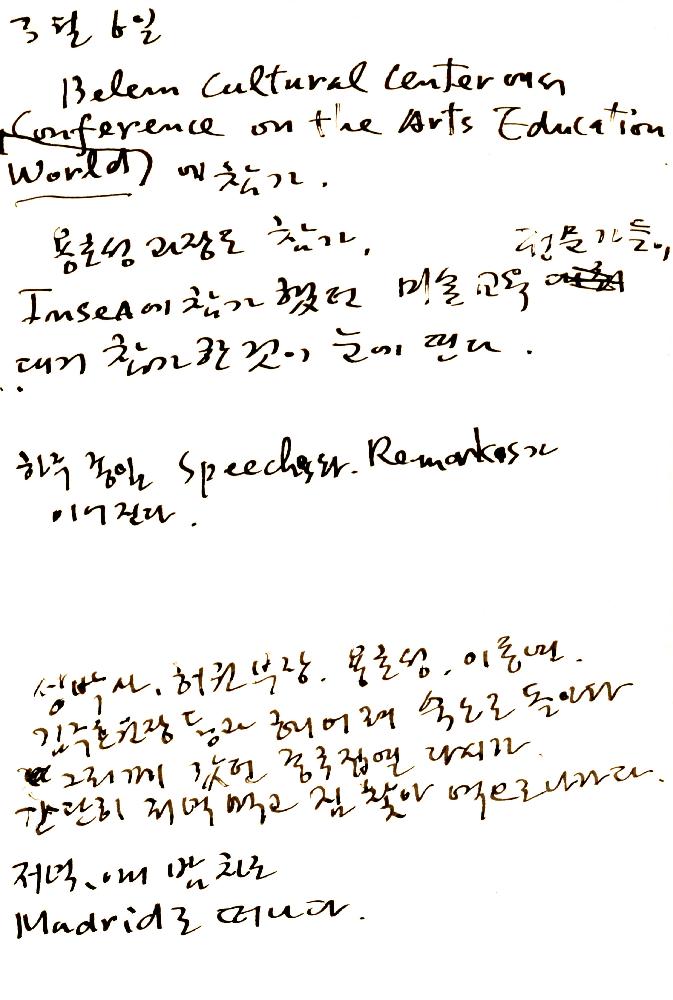 3월 6일
Belem Cultural Center에서
Conference on the Arts Education
World) 에 참가.
용호성 과장도 참가, 전문가들,
InseA에 참가했던 미술 교육
대거 참가한 것이 눈에 띈다.
하루 종일 Speech와. Remarks가
이어진다.
허권 부장. 용호성.
등과 숙소로 돌아와
그리끼 갔던 중국집엘 다시가
간단히 저녁 먹고 짐 찾아 역으로 나가다.
저녁, 밤 차로
Madrid로 떠나다.